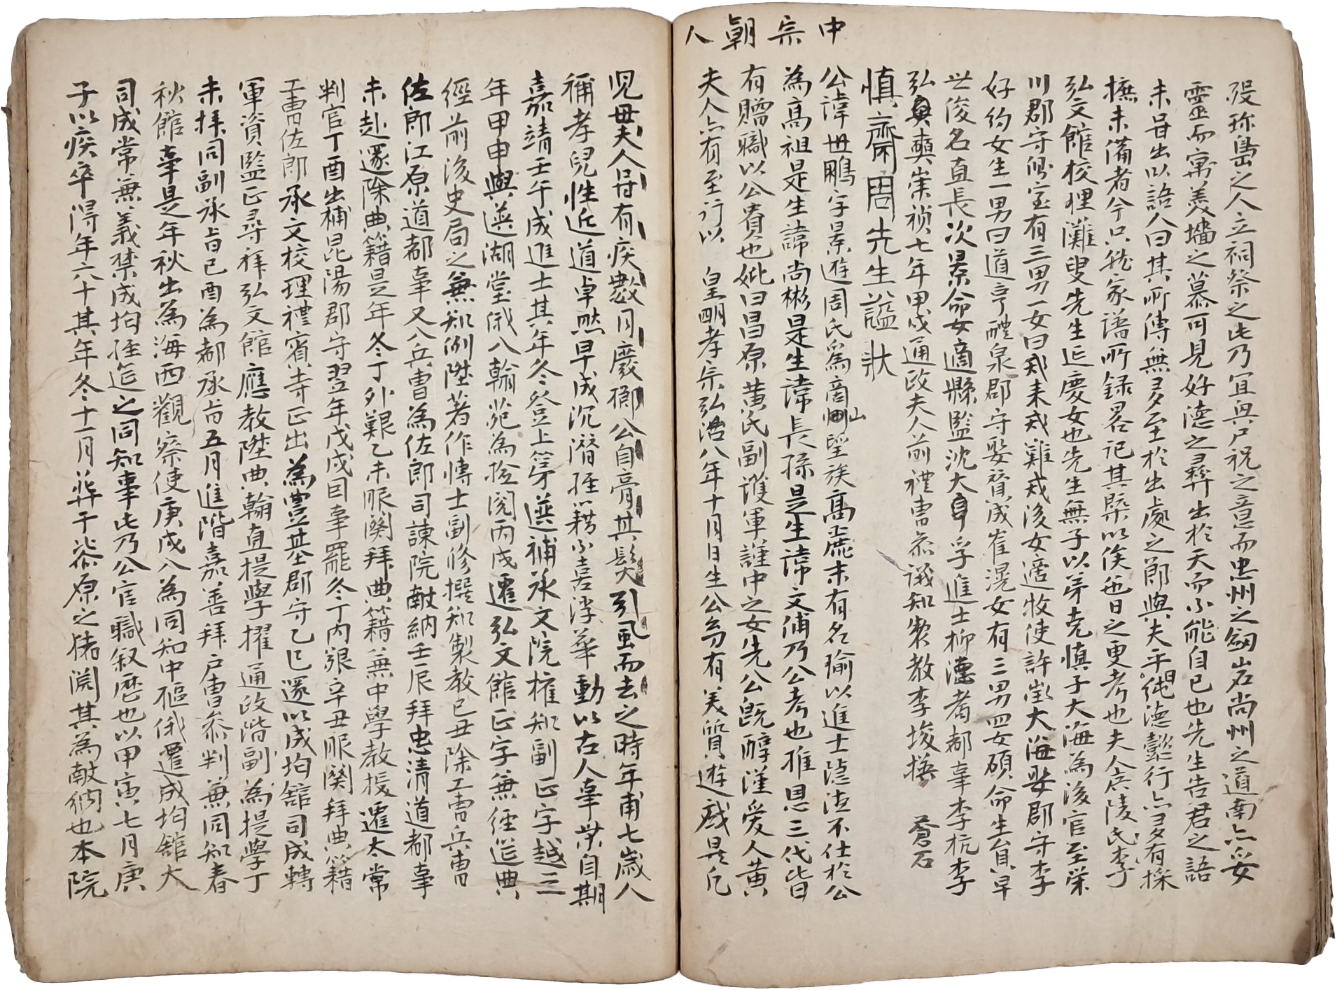 中宗朝人
歿珎島之人立祠祭之此乃冝與尸祝之意而忠州之劒岩尚州之道南亦妥
靈而寓羙墻之慕可見好德之彛出於天而不能自已也先生告君之語
未甞出以語人曰其所傳無多至於出處之節與夫平德懿行亦多有採
摭未備者今只就家譜所錄畧記其槩以俟他日之更考也夫人廣陵氏李
弘文館校理灘叟先生延慶女也先生無子以弟克愼子大海為後官至荣
川郡守側室有三男一女曰戒来戒難戒後女適牧使許澂大海娶郡守李
好約女生一男曰道亨醴泉郡守娶賛成崔滉女有三男四女碩命生員早
世俊名直長次景命女適縣監沈大孚進士柳者都事李杭李
弘奭崇禎七年甲戌通政夫人前禮曺叅議知製教李埈撰　蒼石
愼齋周先生謚狀
公諱世鵬字景遊周氏為商山望族高麗末有名瑜以進士不仕於公
為高祖是生諱尚彬是生諱長孫是生諱文俌乃公考也推恩三代皆
有贈職以公貴也妣曰昌原黃氏副護軍謹中之女先公旣醇謹爱人黃
夫人亦有至行以　皇明孝宗弘治八年十月日生公幼有羙質遊戱是凢
児毋夫人甞有疾數月廢櫛公自膏其髮引風而去之時年甫七歲人
稱孝兒性近道卓然早成沉潛経籍不喜浮華動以古人事業自期
嘉靖壬午成進士其年冬登上第選補承文院權知副正字越三
年甲申與選湖堂俄入翰苑為撿閱丙戌遷弘文館正字無經筵典
經前後史局之無知例陞著作愽士副修撰知製教己丑除工曺兵曺
佐郎江原道都事又入兵曺為佐郎司諫院献納壬辰拜忠清道都事
未赴遞除典籍是年冬丁外艱乙未服闋拜典籍無中學教授遷太常
判官丁酉出補昆陽郡守翌年戊戌因事罷冬丁內艱辛丑服闋拜典籍
工曺佐郎承文校理禮賓寺正出為豊基郡守乙巳遞以成均館司成轉
軍資監正尋拜弘文館應教陞典翰直提學擢通政階副為提學丁
未拜同副承旨己酉為都承旨五月進階嘉善拜戶曺叅判無同知春
秋館事是年秋出為海西觀察使庚戌入為同知中樞俄遷成均館大
司成常無義禁成均経筵之同知事此乃公官職叙歷也以甲寅七月庚
子以疾卒得年六十其年冬十一月葬于漆原之猪渕其為献納也本院